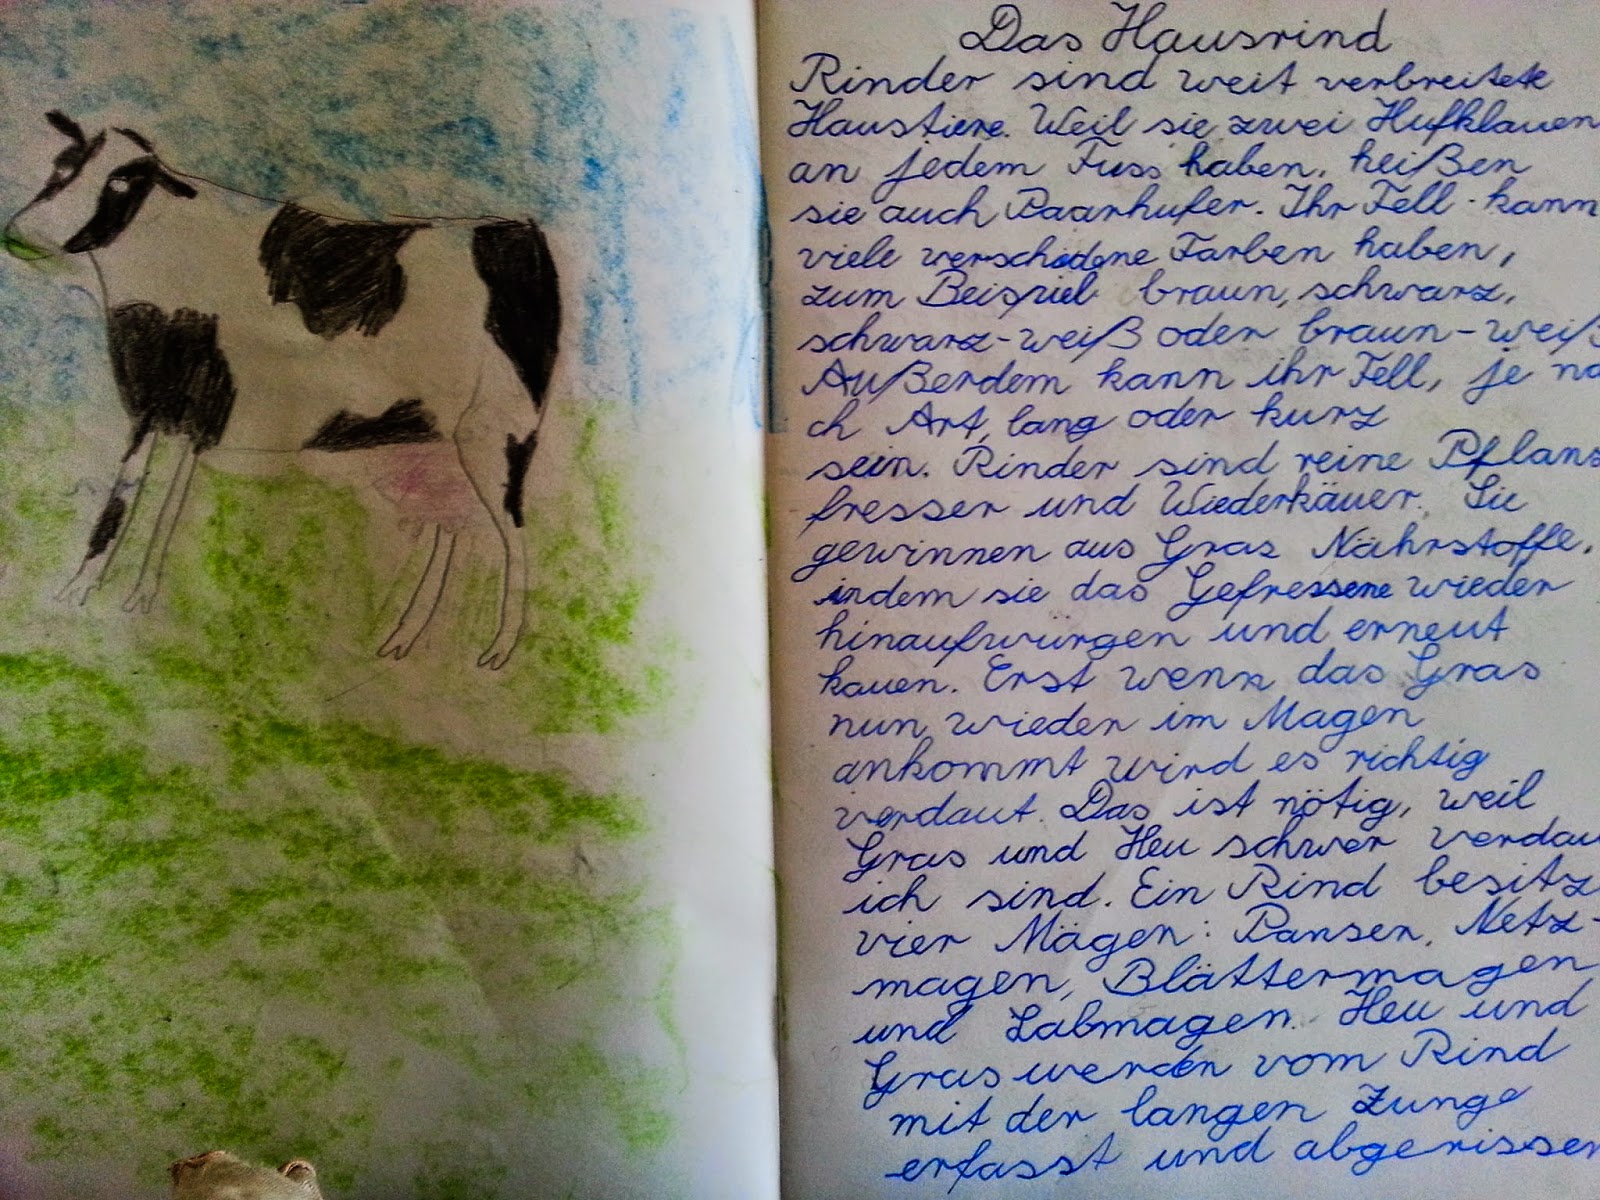 Das Hausrind
Rinder sind weit verbreitete
Haustiere. Weil sie zwei Hufklauen
an jedem Fuss haben, heißen
sie auch Paarhufer. Ihr Fell kann
viele verschidene Farben haben,
zum Beispiel braun, schwarz,
schwarz-weiß oder braun-weiß
Außerdem kann ihr Fell, je na
ch Art, lang oder kurz
sein. Rinder sind reine Pflanz
fresser und Wiederkäuer. Sie
gewinnen aus Gras Nährstoffe,
indem sie das Gefressene wieder
hinaufwürgen und erneut
kauen. Erst wenn das Gras
nun wieder im Magen
ankommt wird es richtig
verdaut. Das ist nötig, weil
Gras und Heu schwer verdau
ich sind. Ein Rind besitz
vier Mägen: Pansen, Netz-
magen, Blättermagen
und Labmagen. Heu und
Gras werden vom Rind
mit der langen Zunge
erfasst und abgerissen